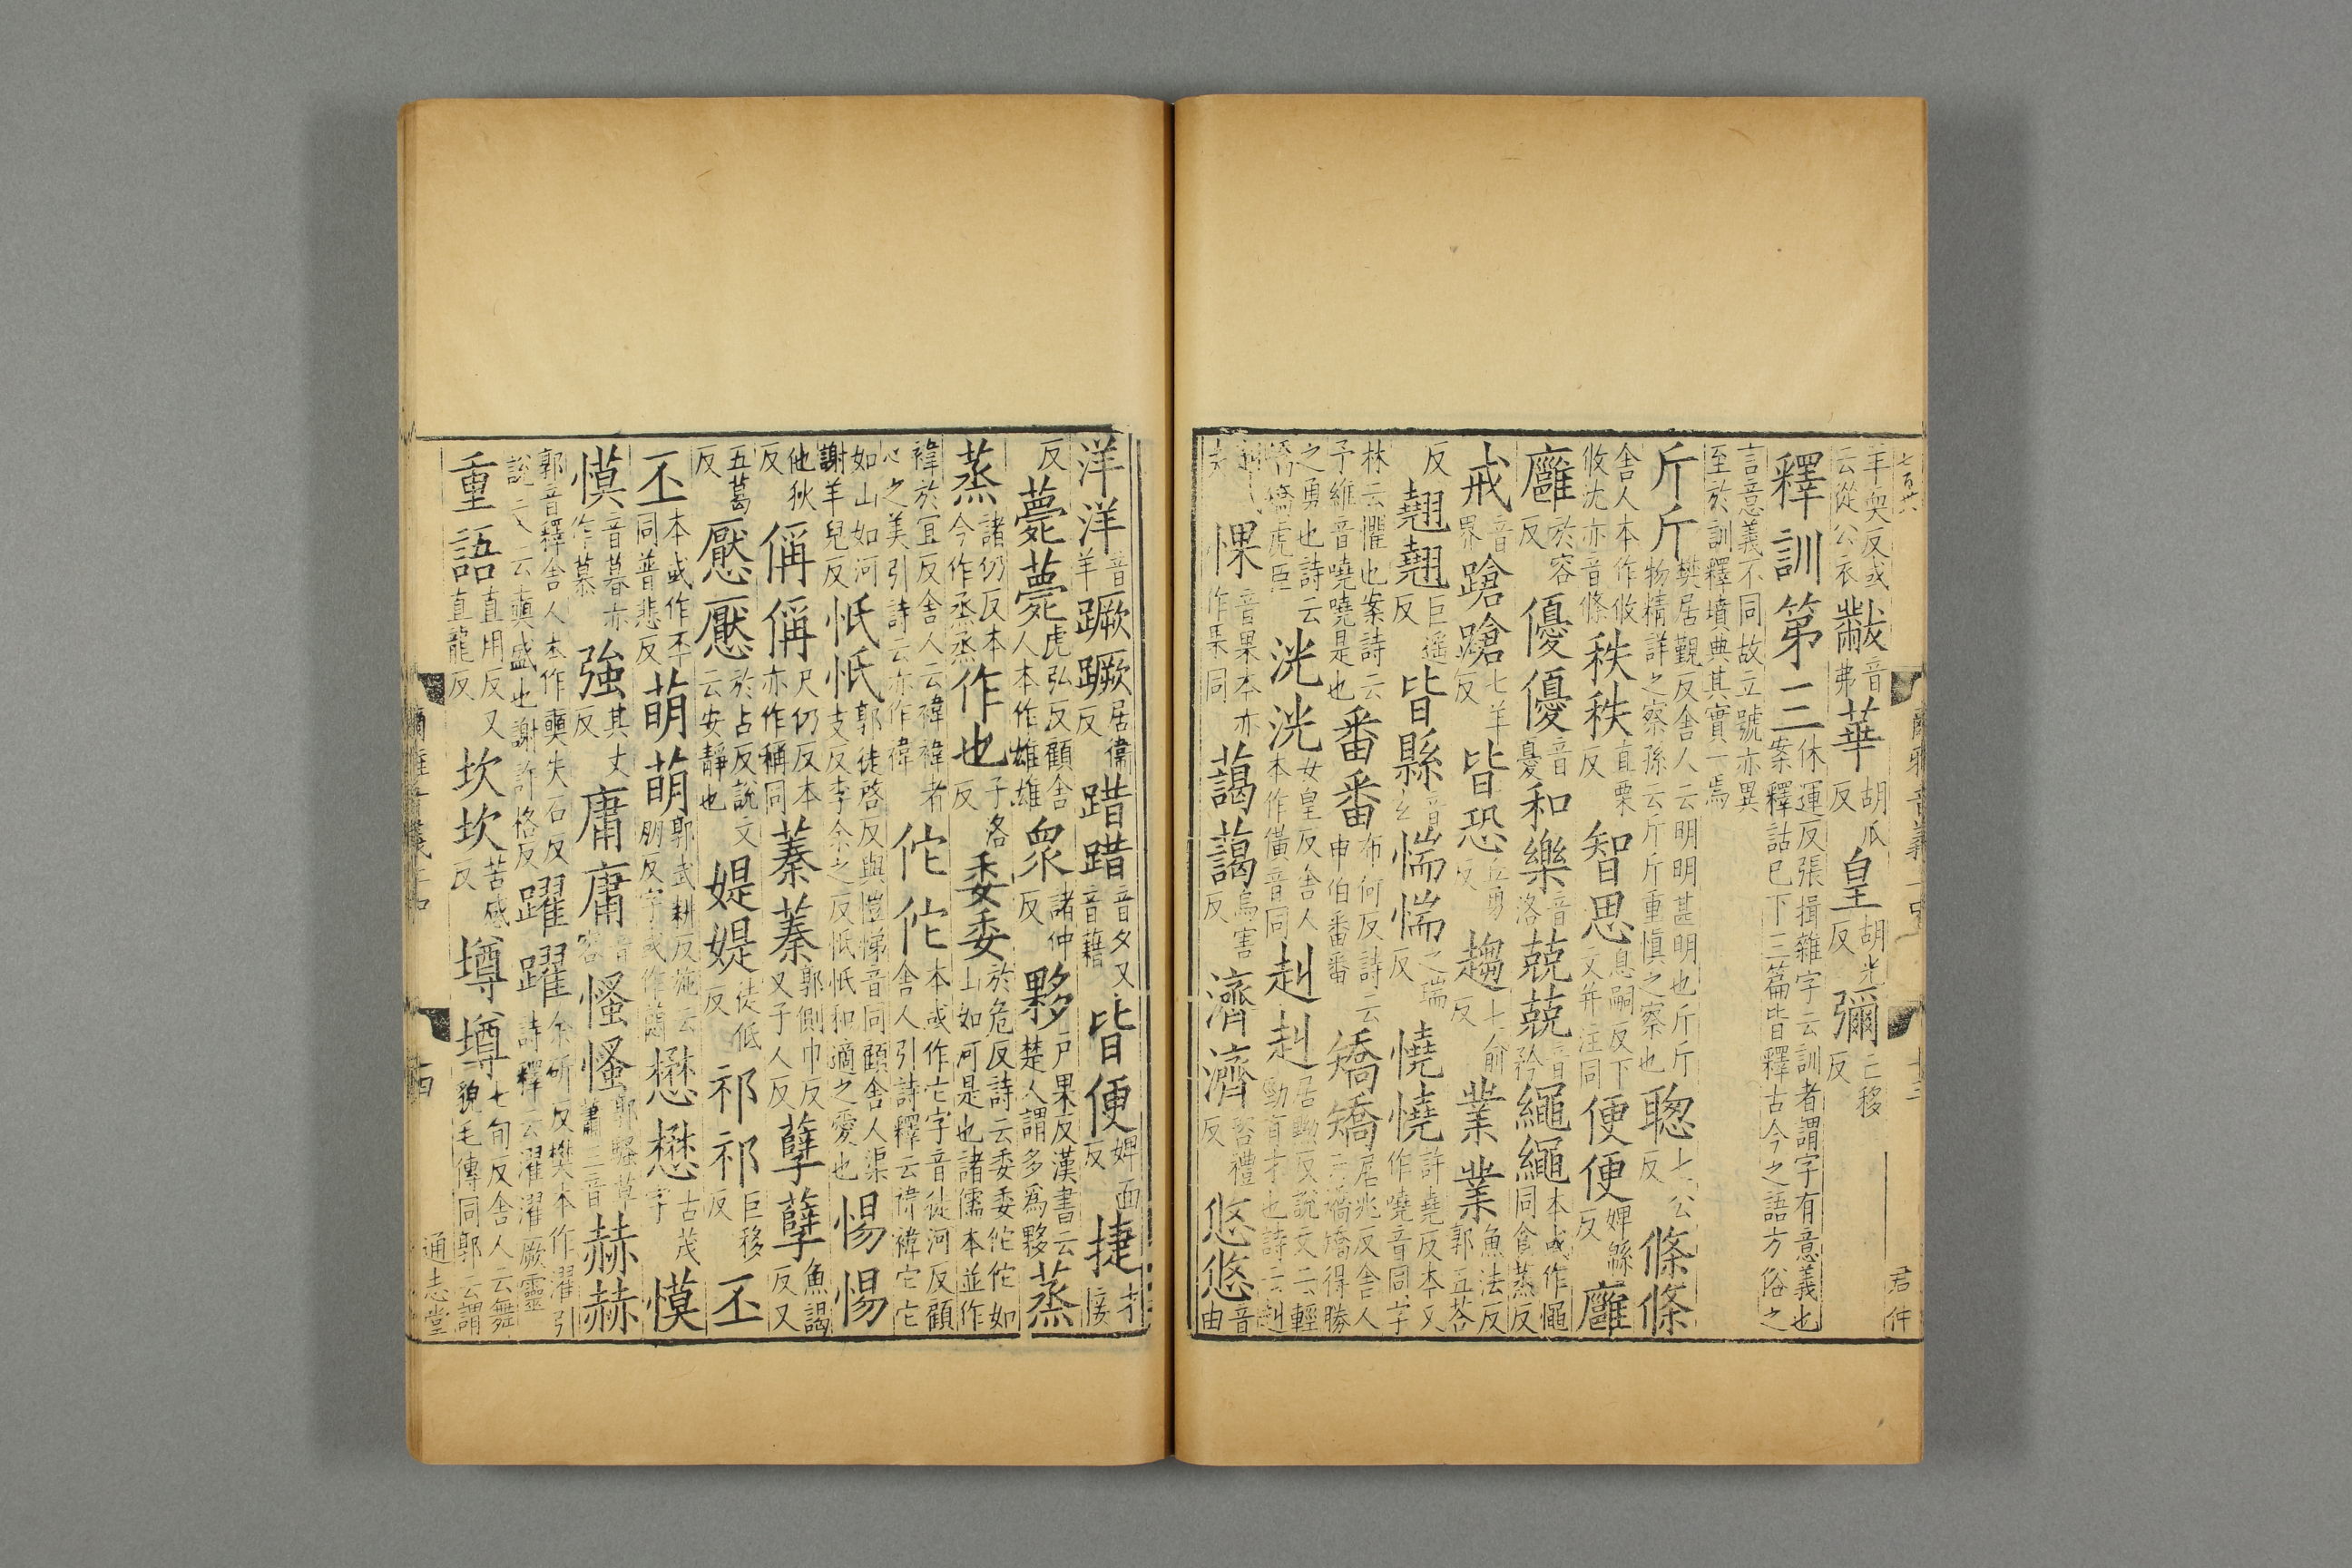 羊奐反或云從公衣 黻音弗 華胡瓜反 皇胡光反 彌亡移反
釋訓第三休運反張揖雜字云訓者謂字有意義也案釋詁已下三篇皆釋古今之語方俗之
言意義不同故立號亦異至於訓釋墳典其實一焉
斤斤樊居覲反舍人云明明甚明也斤斤物精詳之察孫云斤斤重慎之察也 聰七公反 條條
舍人本作攸攸沈亦音條 秩秩直栗反 智思息嗣反下文并注同 便便婢緜反 廱
廱於容反 優優音憂 和樂音洛 兢兢音矜 繩繩本或作憴同食蒸反
戒音界 蹌蹌七羊反 皆恐丘勇反 趨七俞反 業業魚法反郭五荅
反 翹翹巨遥反 皆縣音玄 惴惴之瑞反 憢憢許堯反本又作嘵音同字
林云懼也案詩云予維音嘵嘵是也 番番布何反詩云申伯番番 矯矯居兆反舍人云矯矯得勝
之勇也詩云矯矯虎臣 洸洸女皇反舍人本作僙音同 赳赳居黝反說文云輕勁有才也詩云赳
赳武夫 惈音果本亦作果同 藹藹烏害反 濟濟咨禮反 悠悠音由
洋洋音羊 蹶蹶居衛反 踖踖音夕又音藉 皆便婢面反 捷才接
反 薨薨虎弘反顧舍人本作雄雄 衆諸仲反 夥戸果反漢書云楚人謂多爲夥 蒸
蒸諸仍反本今作烝烝 作也子洛反 委委於危反詩云委委佗佗如山如河是也諸儒本並作
褘於宜反舍人云褘褘者心之美引詩云亦作褘 佗佗本或作它字音徒河反顧舍人引詩釋云褘褘它它
如山如河謝羊兒反 忯忯郭徒啓反與愷悌音同顧舍人渠支反李余之反忯忯和適之愛也 惕惕
他狄反 偁偁尺仍反本亦作稱同 蓁蓁郭側巾反又子人反 孽孽魚謁反又
五葛反 懕懕於占反說文云安靜也 媞媞徒低反 祁祁巨移反 丕
丕本或作㔻同普悲反 萌萌郭武耕反施云朋反字或作蕄 懋懋古茂字 慔
慔音暮亦作慕 強其丈反 庸庸音容 慅慅郭騷草蕭三音 赫赫
郭音釋舍人本作奭失石反說文云奭盛也謝許格反 躍躍余斫反樊本作濯引詩釋云濯濯厥靈
重語直用反又直龍反 坎坎苦感反 壿壿七旬反舍人云舞貌毛傳同郭云謂
爾雅音義上 十三 君仲
十四 通志堂